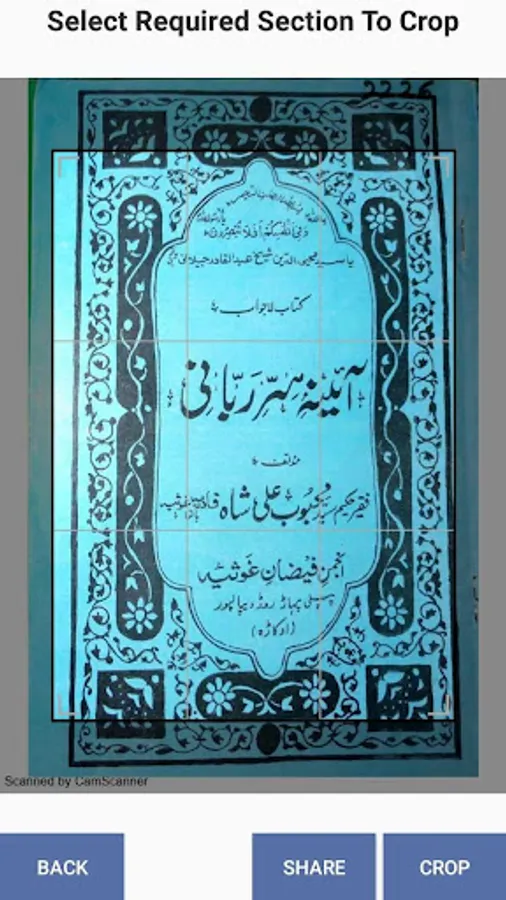 Select Required Section To Crop
2226
وفی انفسکم افلا تبصرون
یا سید محیی الدین شیخ عبدالقادر جیلانی
کتاب لاجواب
آئینہ سرّ ربّانی
مؤلف
فقیر حکیم سید محبوب علی شاہ قادری غوثیہ
انجمن فیضانِ غوثیہ
پہاڑ روڈ دیپالپور
(اوکاڑہ)
Scanned by CamScanner
BACK
SHARE
CROP